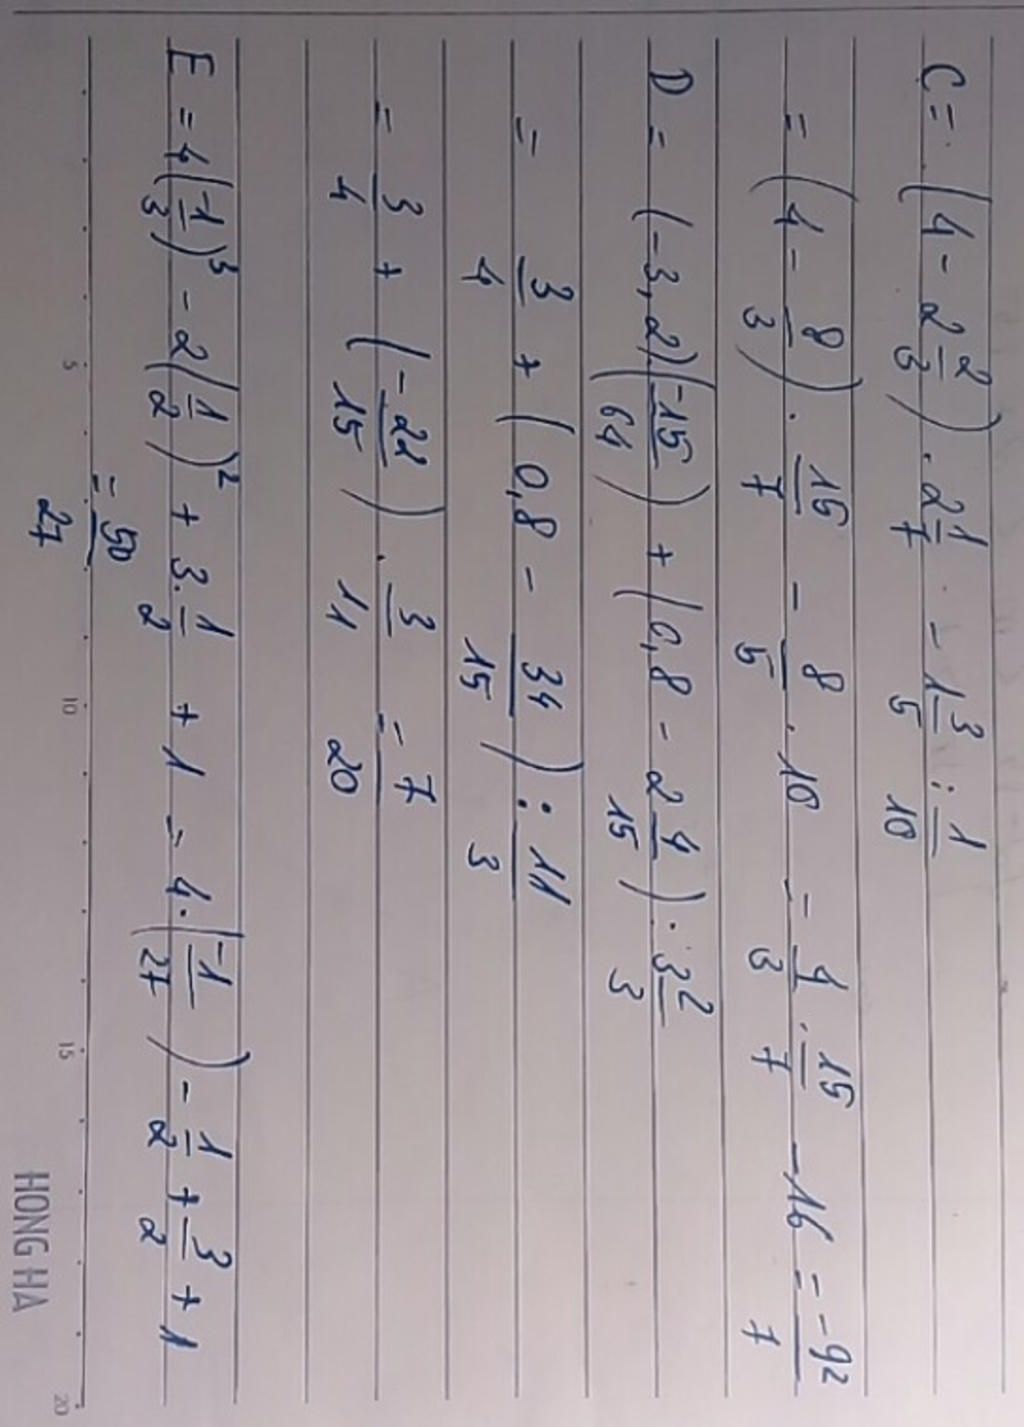 C = (4 - 2 2/3) . 2 1/7 - 1 3/5 : 1/10
= (4 - 8/3) . 15/7 - 8/5 . 10 = 4/3 . 15/7 - 16 = -92/7
D = (-3,2)(-15/64) + (0,8 - 2 4/15) : 3 2/3
= 3/4 + (0,8 - 34/15) : 11/3
= 3/4 + (-22/15) . 3/11 = 7/20
E = 4(-1/3)³ - 2(1/2)² + 3.1/2 + 1 = 4.(-1/27) - 1/2 + 3/2 + 1
= 50/27
5 10 15 20
HONG HA